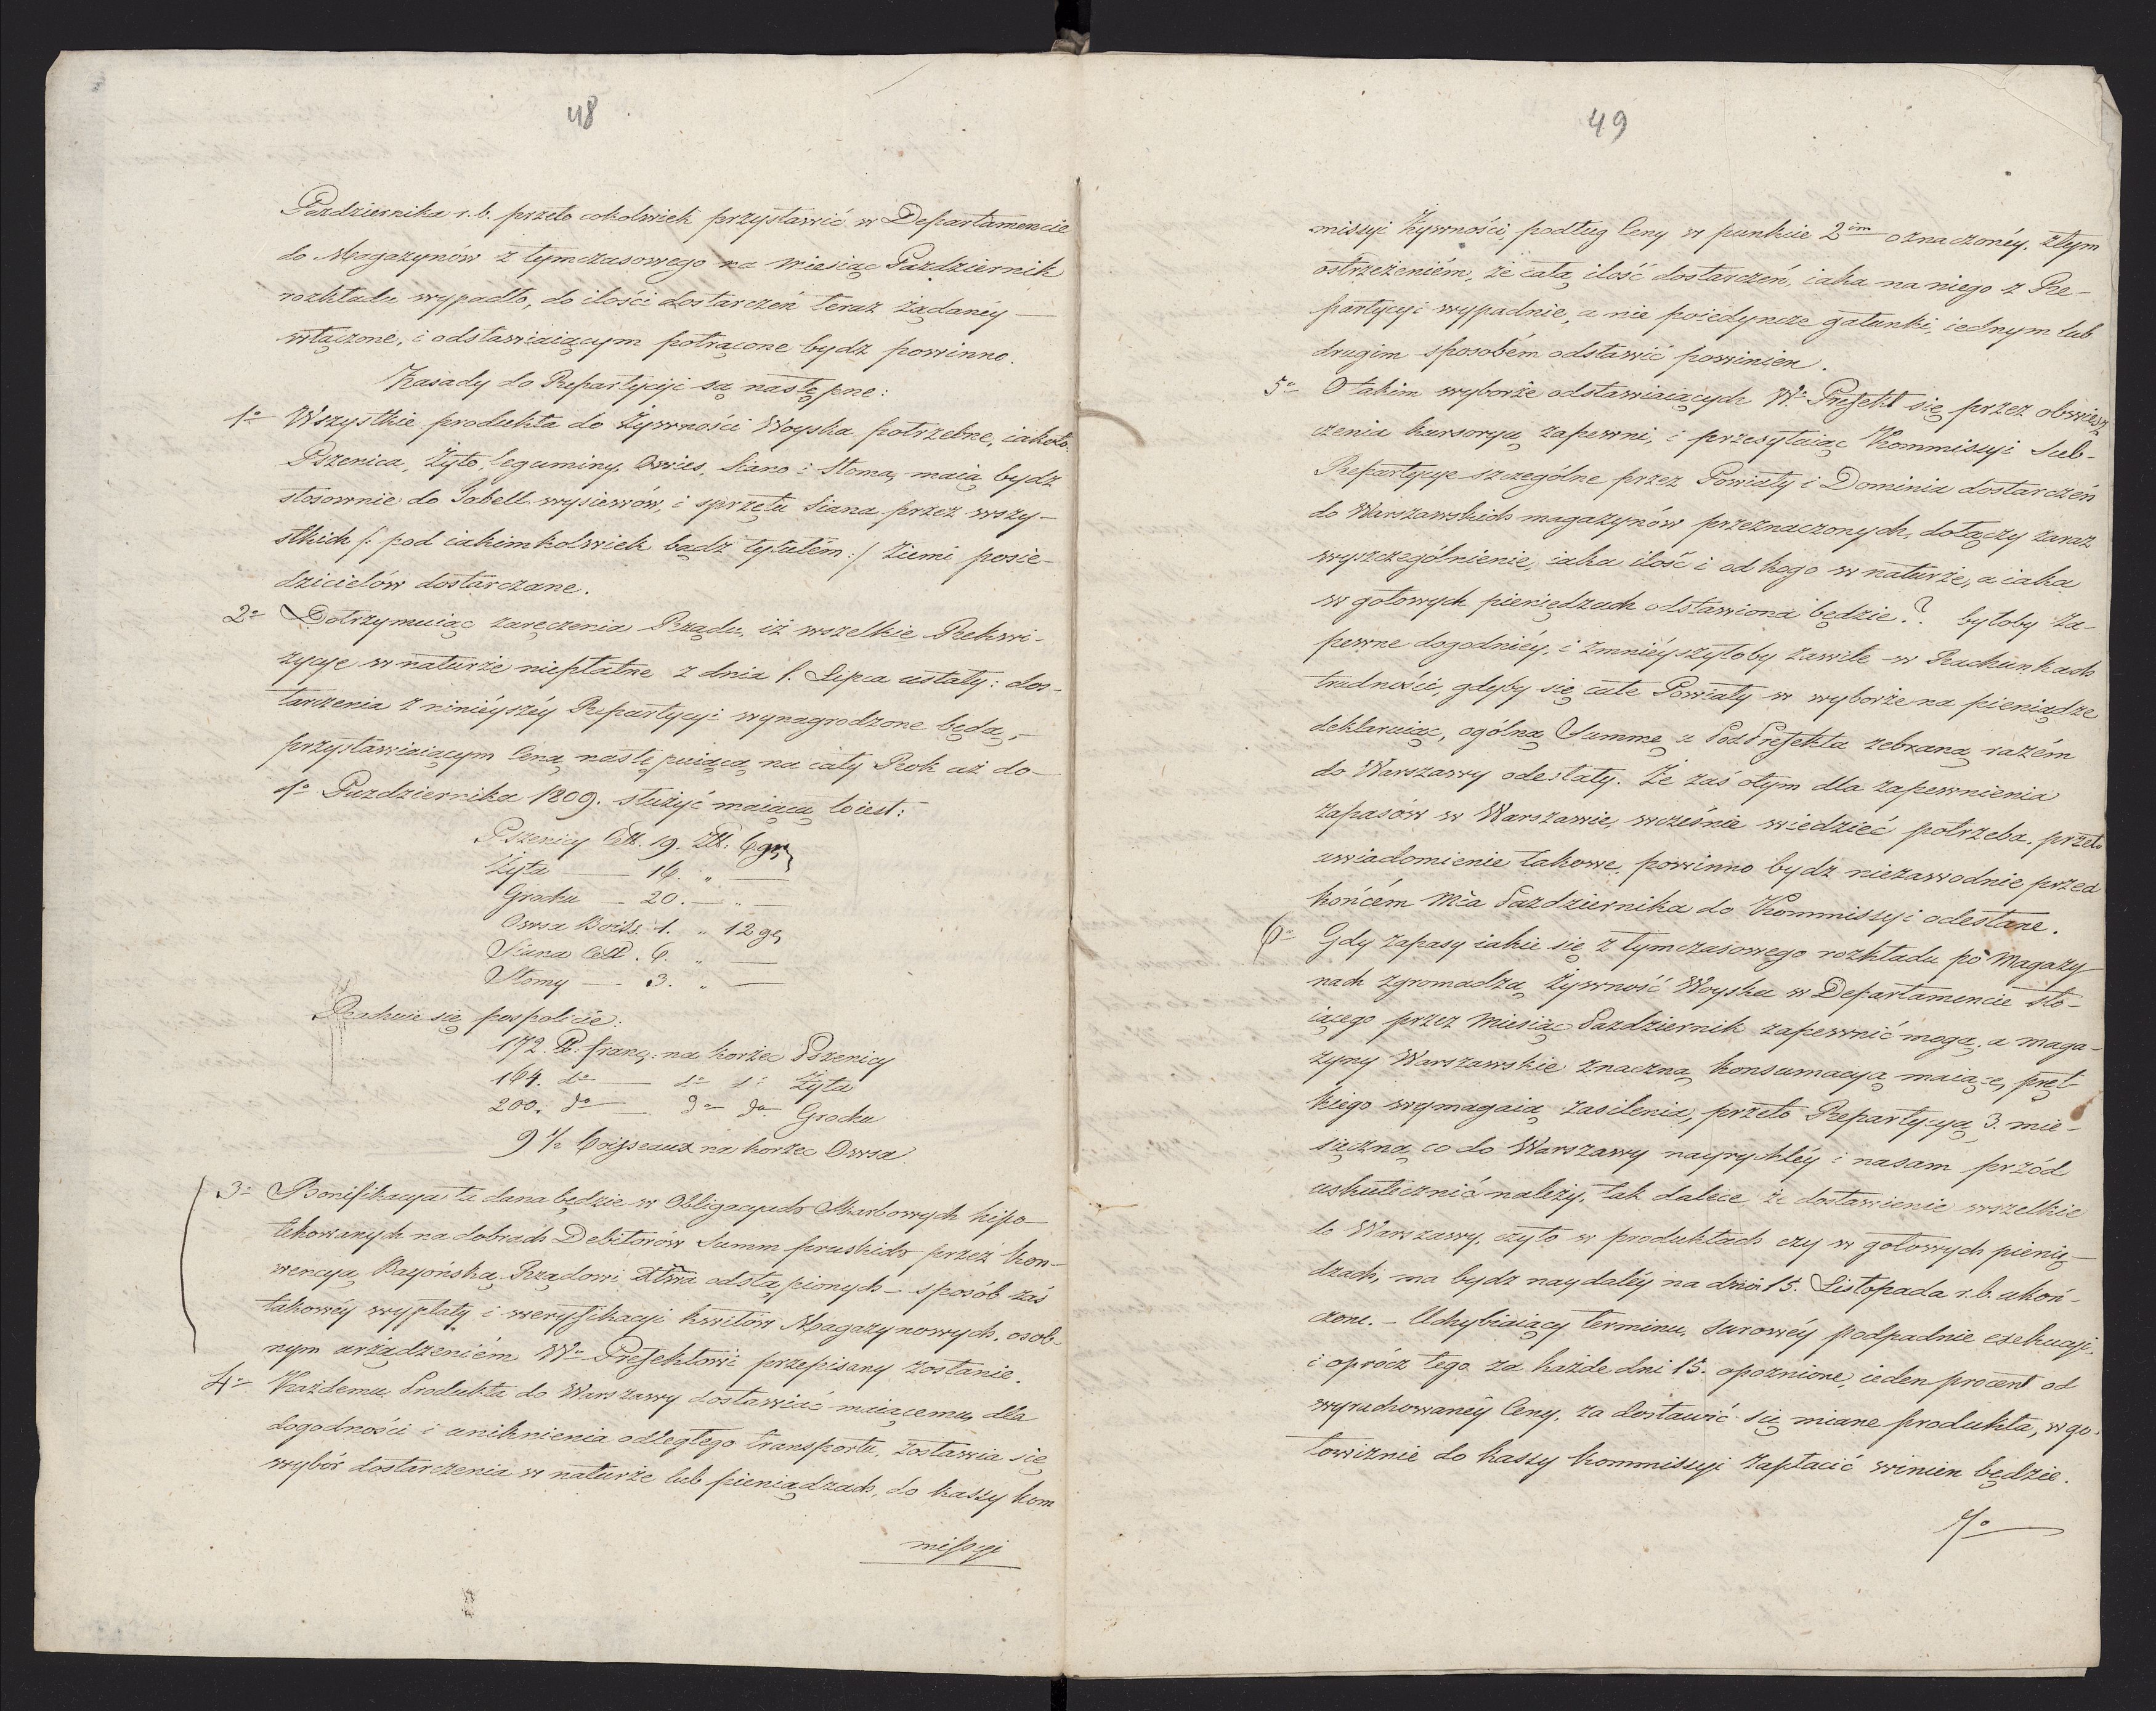 48
Pazdziernika r. b. przeto cokolwiek przystawić w Departamencie
do Magazynów z tymczasowego na Miesiąc Pazdziernik
rozkładu wypadło, do ilości dostarczeń teraz żądanéy —
włączone, i odstawiaiącym potrącone bydz powinno.
Zasady do Repartycyi są następne:
1o Wszystkie produkta do Żywności Woyska potrzebne, iakoto:
Pszenica, Żyto, leguminy, Owies, Siano i Słoma, maią bydz
stosownie do Tabell wysiewów, i sprzętu Siana przez wszy-
stkich /: pod iakimkolwiek bądz tytułem :/ Ziemi posie-
dzicielów dostarczane.
2o Dotrzymuiąc zaręczenia Rządu, iż wszelkie Rekwi-
zycye w naturze niepłatne z dnia 1. Lipca ustały: dos-
tarczenia z ninieyszéy Repartycyi wynagrodzone będą,-
przystawiaiącym Ceną następuiącą na cały Rok aż do —
1o Pazdziernika 1809. służyć maiącą to iest:
Pszenicy Ctt. 19. Złł: 6 gr
Żyta — 16. " —
Grochu — 20. — " —
Owsa Boiss. 1. " 12 gr
Siana Ctt. 6. " —
Słomy — 3. " —
Rachuie się pospolicie:
172. ℔. franc: na korzec Pszenicy
164. do — do do Żyta
200. do — do do Grochu
9 1/2 Boisseaux na korzec Owsa.
3o Bonifikacya ta dana będzie w Obligacyach Skarbowych hipo-
tekowanych na dobrach Debitorów Summ pruskich przez Kon-
wencyą Bayońską Rządowi Xtwa odstąpionych — sposób zaś
takowéy wypłaty i weryfikacyi kwitów Magazynowych, osob-
nym urządzeniém Wo Prefektowi przepisany zostanie.
4o Każdemu Produkta do Warszawy dostawiać maiącemu, dla
dogodności i uniknienia odległego transportu, zostawia się
wybór dostarczenia w naturze lub pieniądzach, do kassy Kom
missyi
49
missyi Żywności, podług Ceny w punkcie 2im oznaczonéy, z tym
ostrzeżeniém, że całą ilość dostarczeń, iaka na niego z Re-
partycyi wypadnie, a nie poiedyncze gatunki, iednym lub
drugim sposobém odstawić powinien.
5o O takim wyborze odstawiaiących Wo Prefekt się przez obwiesz
czenia kursoryą zapewni, i przesyłaiąc Kommissyi Sub-
Repartycye szczególne przez Powiaty i Dominia dostarczeń
do Warszawskich magazynów przeznaczonych, dołączy zaraz
wyszczególnienie, iaka ilość i od kogo w naturze, a iaka
w gotowych pieniędzach odstawiona będzie? byłoby za-
pewne dogodniéy, i zmnieyszyłoby zawiłe w Rachunkach
trudności, gdyby się całe Powiaty w wyborze na pieniądze
deklaruiąc, ogólną Summę u PodPrefekta zebraną razém
do Warszawy odesłały. Że zaś o tym dla zapewnienia
zapasów w Warszawie, wcześnie wiedzieć potrzeba, przeto
uwiadomienie takowe, powinno bydz niezawodnie przed
końcém Mca Pazdziernika do Kommissyi odesłane.
6o Gdy zapasy iakie się z tymczasowego rozkładu po Magazy
nach zgromadzą Żywność Woyska w Departamencie sto-
iącego przez Miesiąc Pazdziernik zapewnić mogą, a maga-
zyny Warszawskie znaczną konsumacyą maiące, pręt-
kiego wymagaią zasilenia, przeto Repartycyą 3. mie-
sięczną co do Warszawy nayrychléy i nasam przód
uskutecznić należy, tak dalece że dostawienie wszelkie
do Warszawy, czyto w produktach czy w gotowych pienią-
dzach, ma bydz naydaléy na dniu 15. Listopada r. b. ukoń-
czone. — Uchybiaiący terminu, surowéy podpadnie exekucyi,
i oprócz tego za każde dni 15. opoznione, ieden procent od
wyrachowanéy Ceny, za dostawić się miane produkta, w go-
towiznie do kassy Kommissyi zapłacić winien będzie.
7o